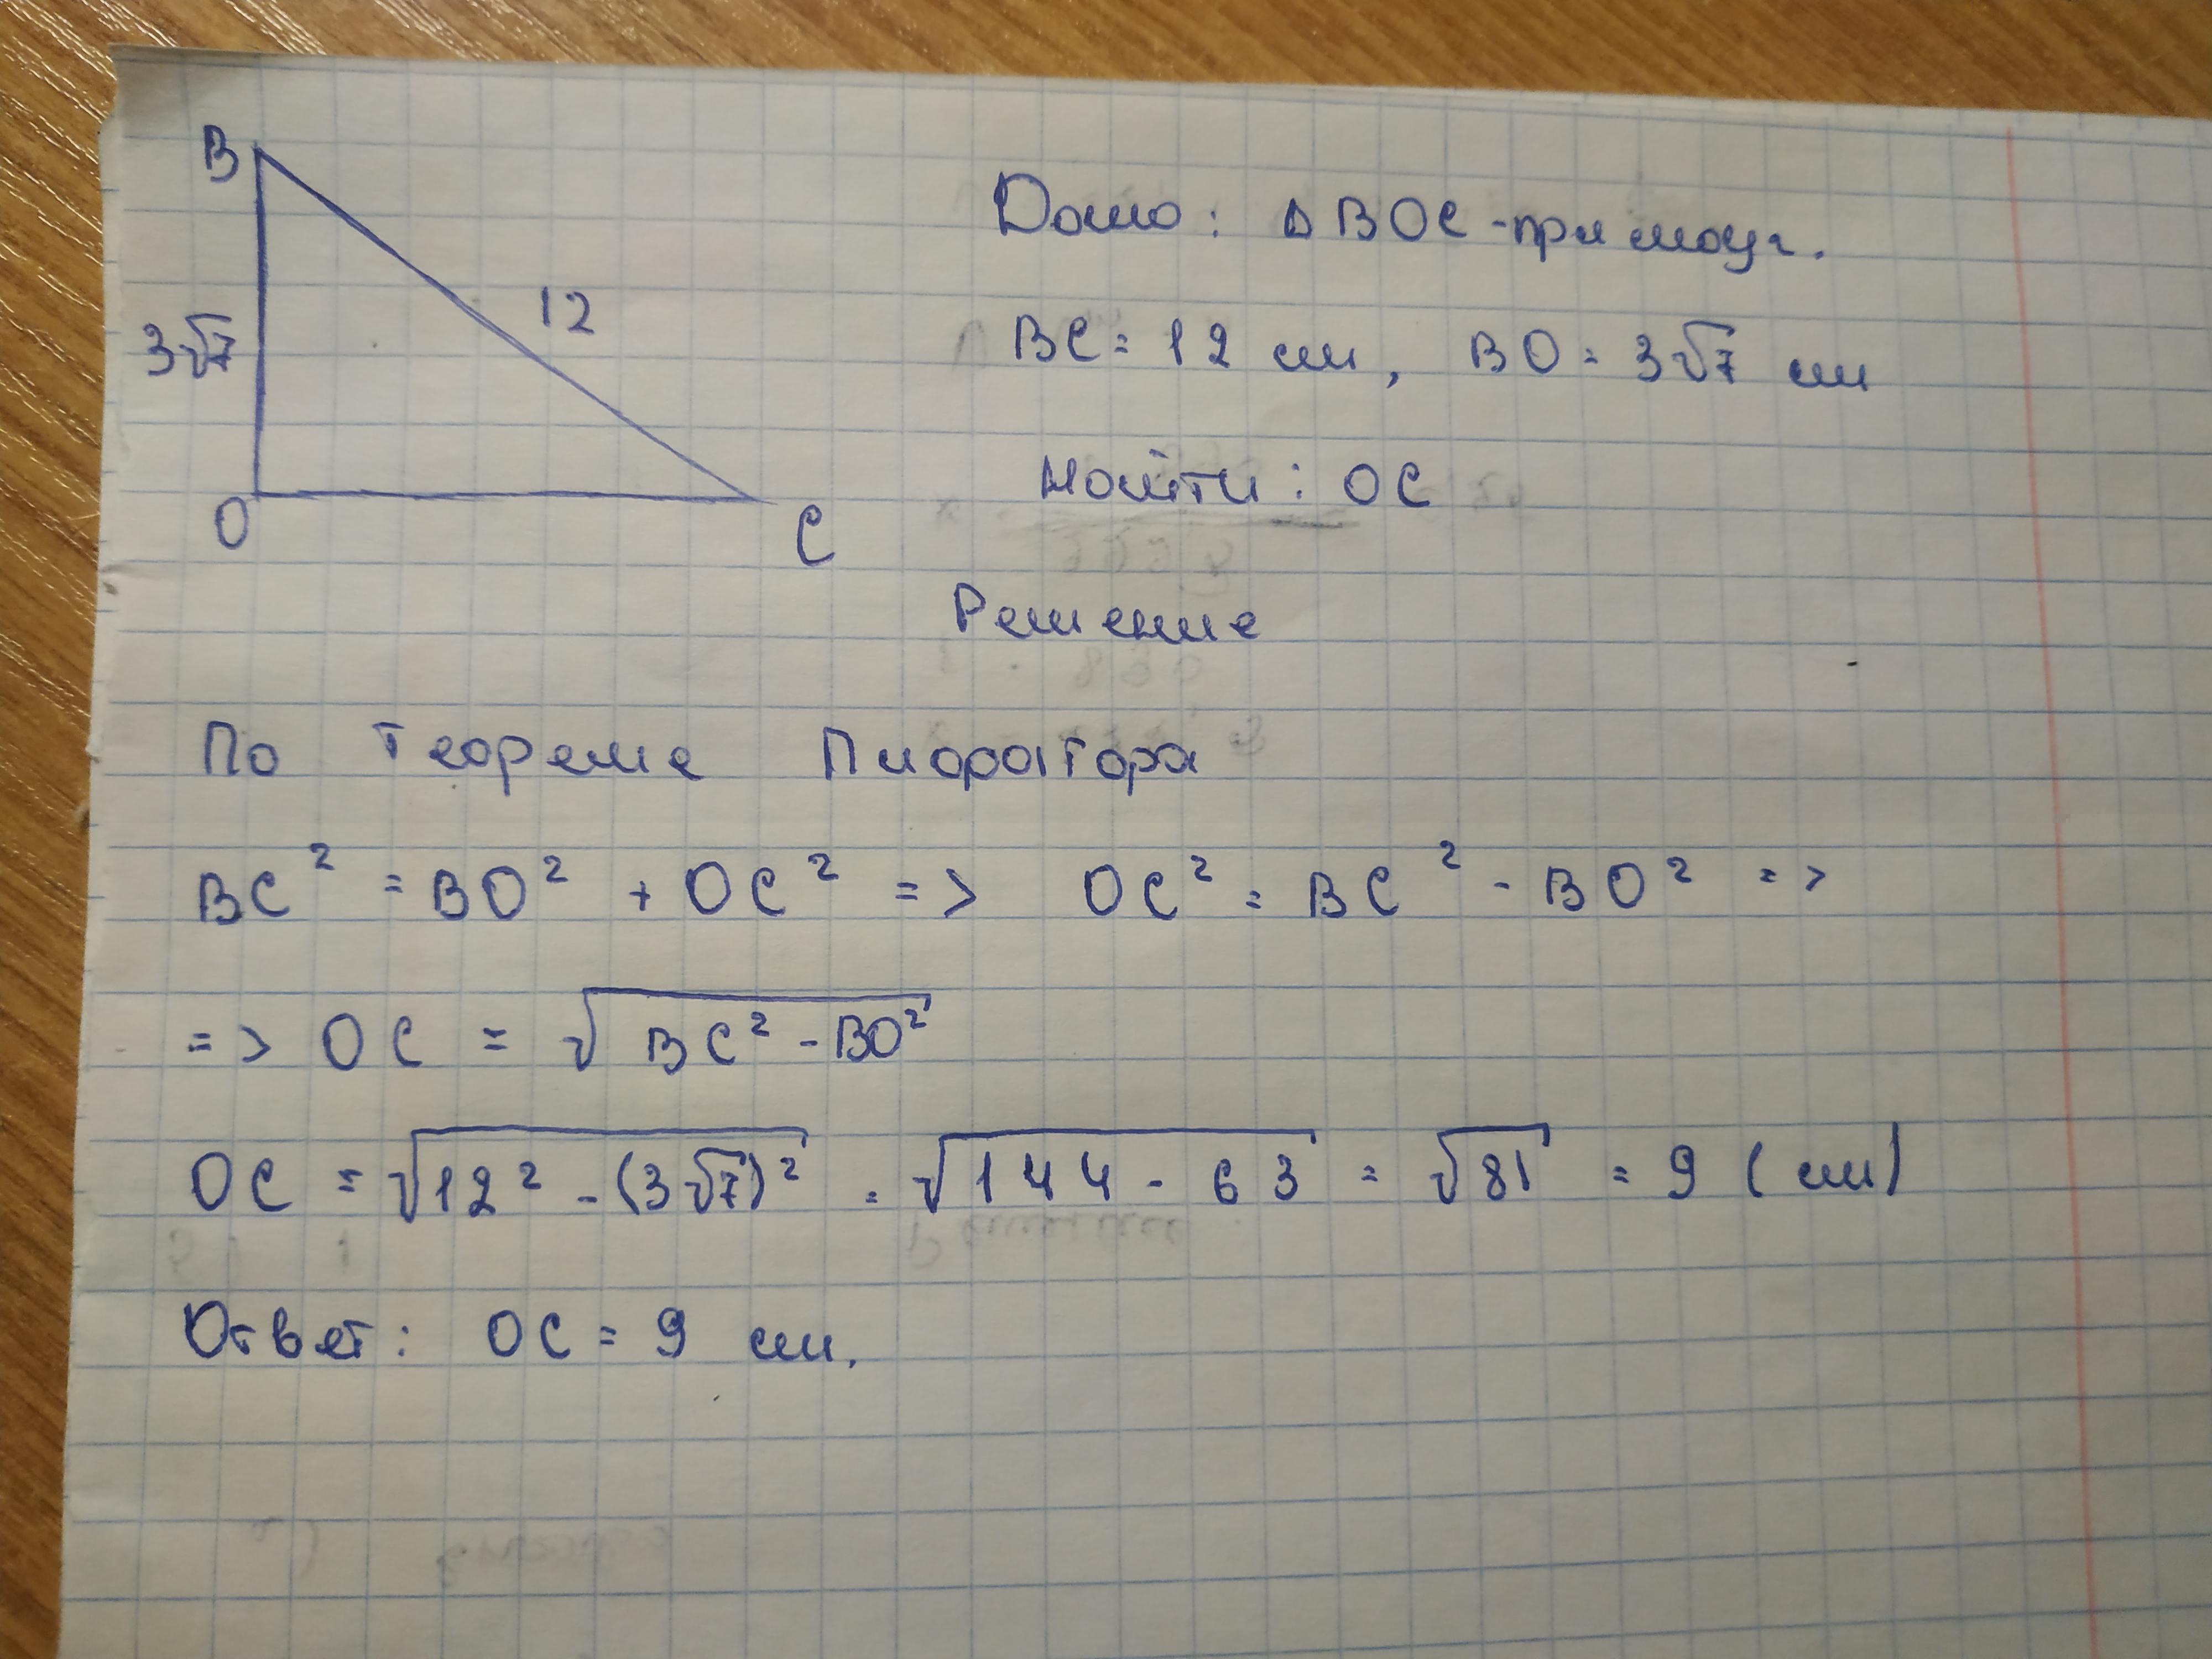 B
12
3√7
O
C
Дано: ΔBOC - прямоуг.
BC = 12 см, BO = 3√7 см
Найти: OC
Решение
По теореме Пифагора
BC² = BO² + OC² => OC² = BC² - BO² =>
=> OC = √(BC² - BO²)
OC = √(12² - (3√7)²) = √(144 - 63) = √81 = 9 (см)
Ответ: OC = 9 см.